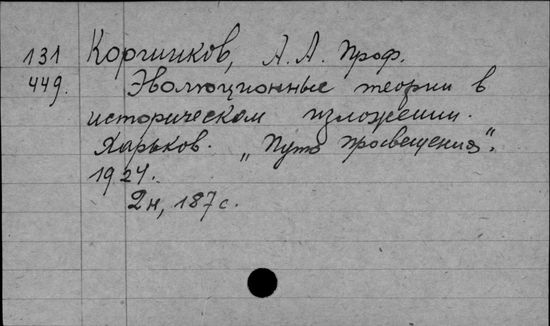 131 Коршиков, А. А. Проф.
449. Эволюционные теории в
историческом изложении.
Харьков. „Путь просвещения".
1924.
2н, 187 с.